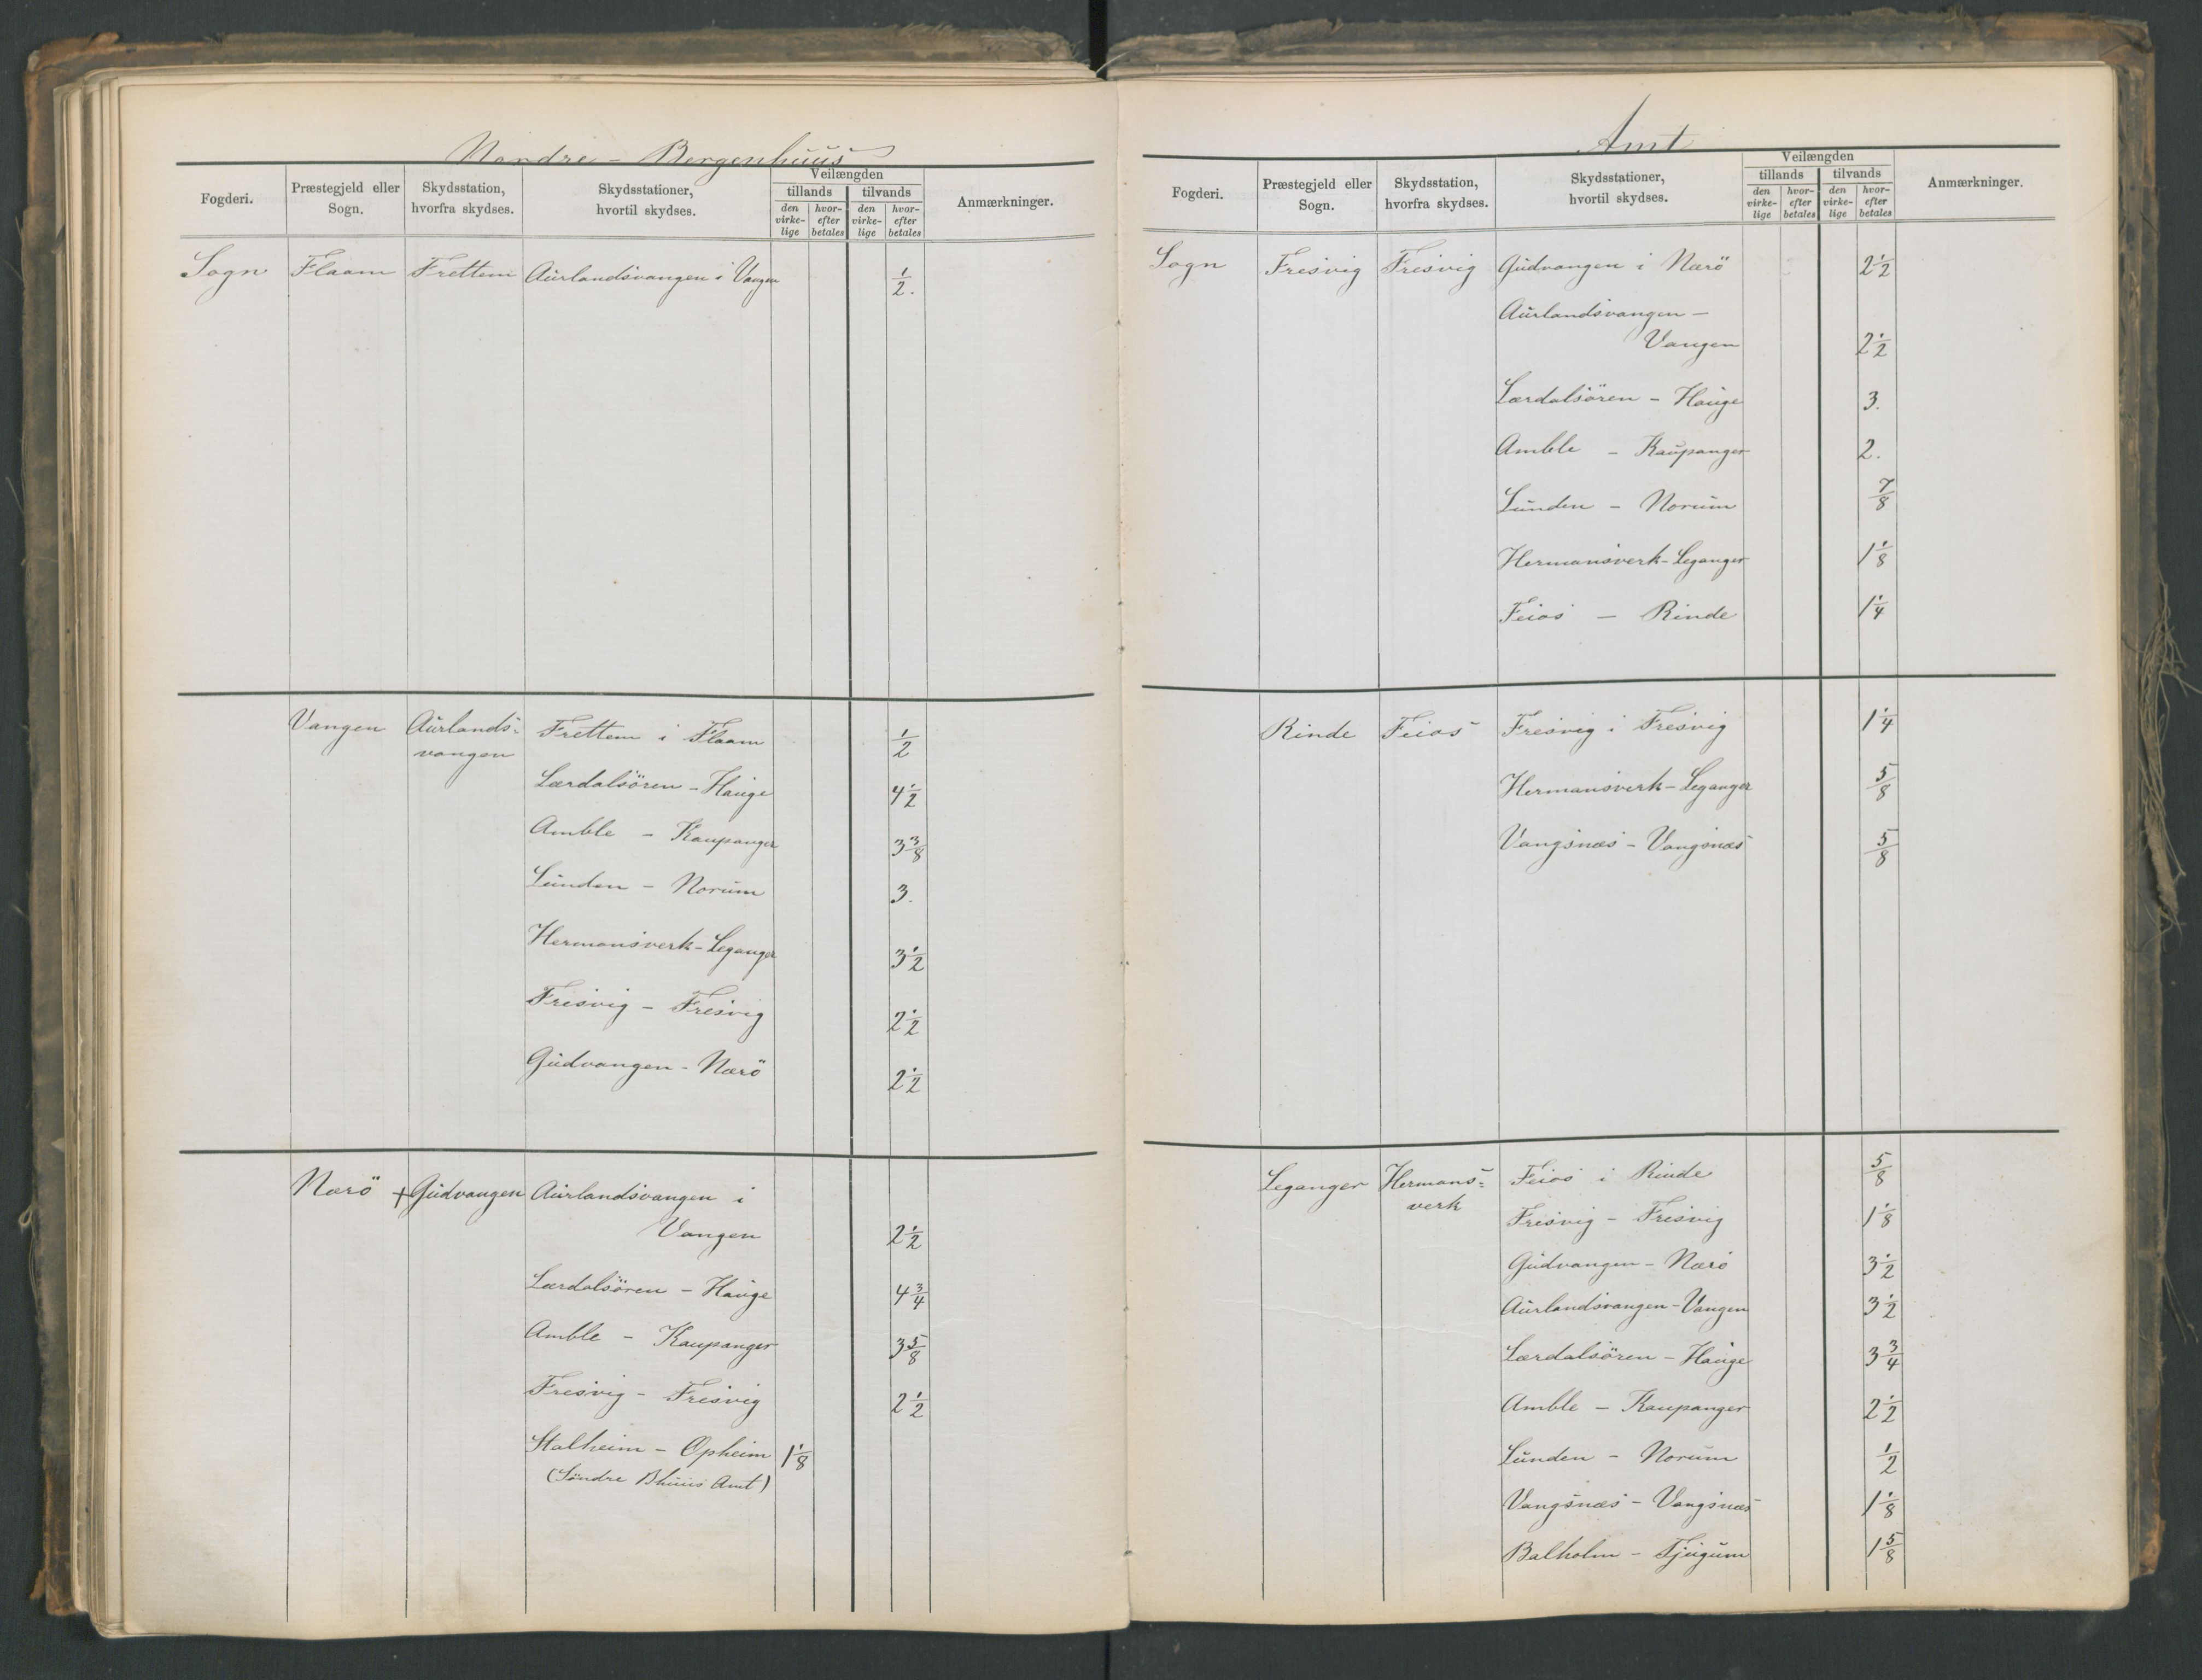 Nordre - Bergenhuus
Fogderi. Præstegjeld eller Sogn. Skydsstation, hvorfra skydses. Skydsstationer, hvortil skydses. Veilængden Anmærkninger.
tillands tilvands
den virke-lige hvor-efter betales den virke-lige hvor-efter betales
Sogn Flaam Frettem Aurlandsvangen i Vangen 1/2.
Vangen Aurlands- Frettem i Flaam 1/2
vangen
Lærdalsören - Hauge 4 1/2
Amble - Kaupanger 3 3/8
Lunden - Norum 3.
Hermansverk - Leganger 3 1/2
Fresvig - Fresvig 2 1/2
Gudvangen - Nærö 2 1/2
Nærö + Gudvangen Aurlandsvangen i
Vangen 2 1/2
Lærdalsören - Hauge 4 3/4
Amble - Kaupanger 3 5/8
Fresvig - Fresvig 2 1/2
Stalheim - Opheim 1 1/8
(Söndre Bhuus Amt)
Amt
Fogderi. Præstegjeld eller Sogn. Skydsstation, hvorfra skydses. Skydsstationer, hvortil skydses. Veilængden Anmærkninger.
tillands tilvands
den virke-lige hvor-efter betales den virke-lige hvor-efter betales
Sogn Fresvig Fresvig Gudvangen i Nærö 2 1/2
Aurlandsvangen -
Vangen 2 1/2
Lærdalsören - Hauge 3.
Amble - Kaupanger 2.
Lunden - Norum 7/8
Hermansverk - Leganger 1 1/8
Feios - Rinde 1 1/4
Rinde Feios Fresvig i Fresvig 1 1/4
Hermansverk - Leganger 5/8
Vangsnæs - Vangsnæs 5/8
Leganger Hermans- Feios i Rinde 5/8
verk
Fresvig - Fresvig 1 1/8
Gudvangen - Nærö 3 1/2
Aurlandsvangen - Vangen 3 1/2
Lærdalsören - Hauge 3 3/4
Amble - Kaupanger 2 1/2
Lunden - Norum 1/2
Vangsnæs - Vangsnæs 1 1/8
Balholm - Tjugum 1 5/8